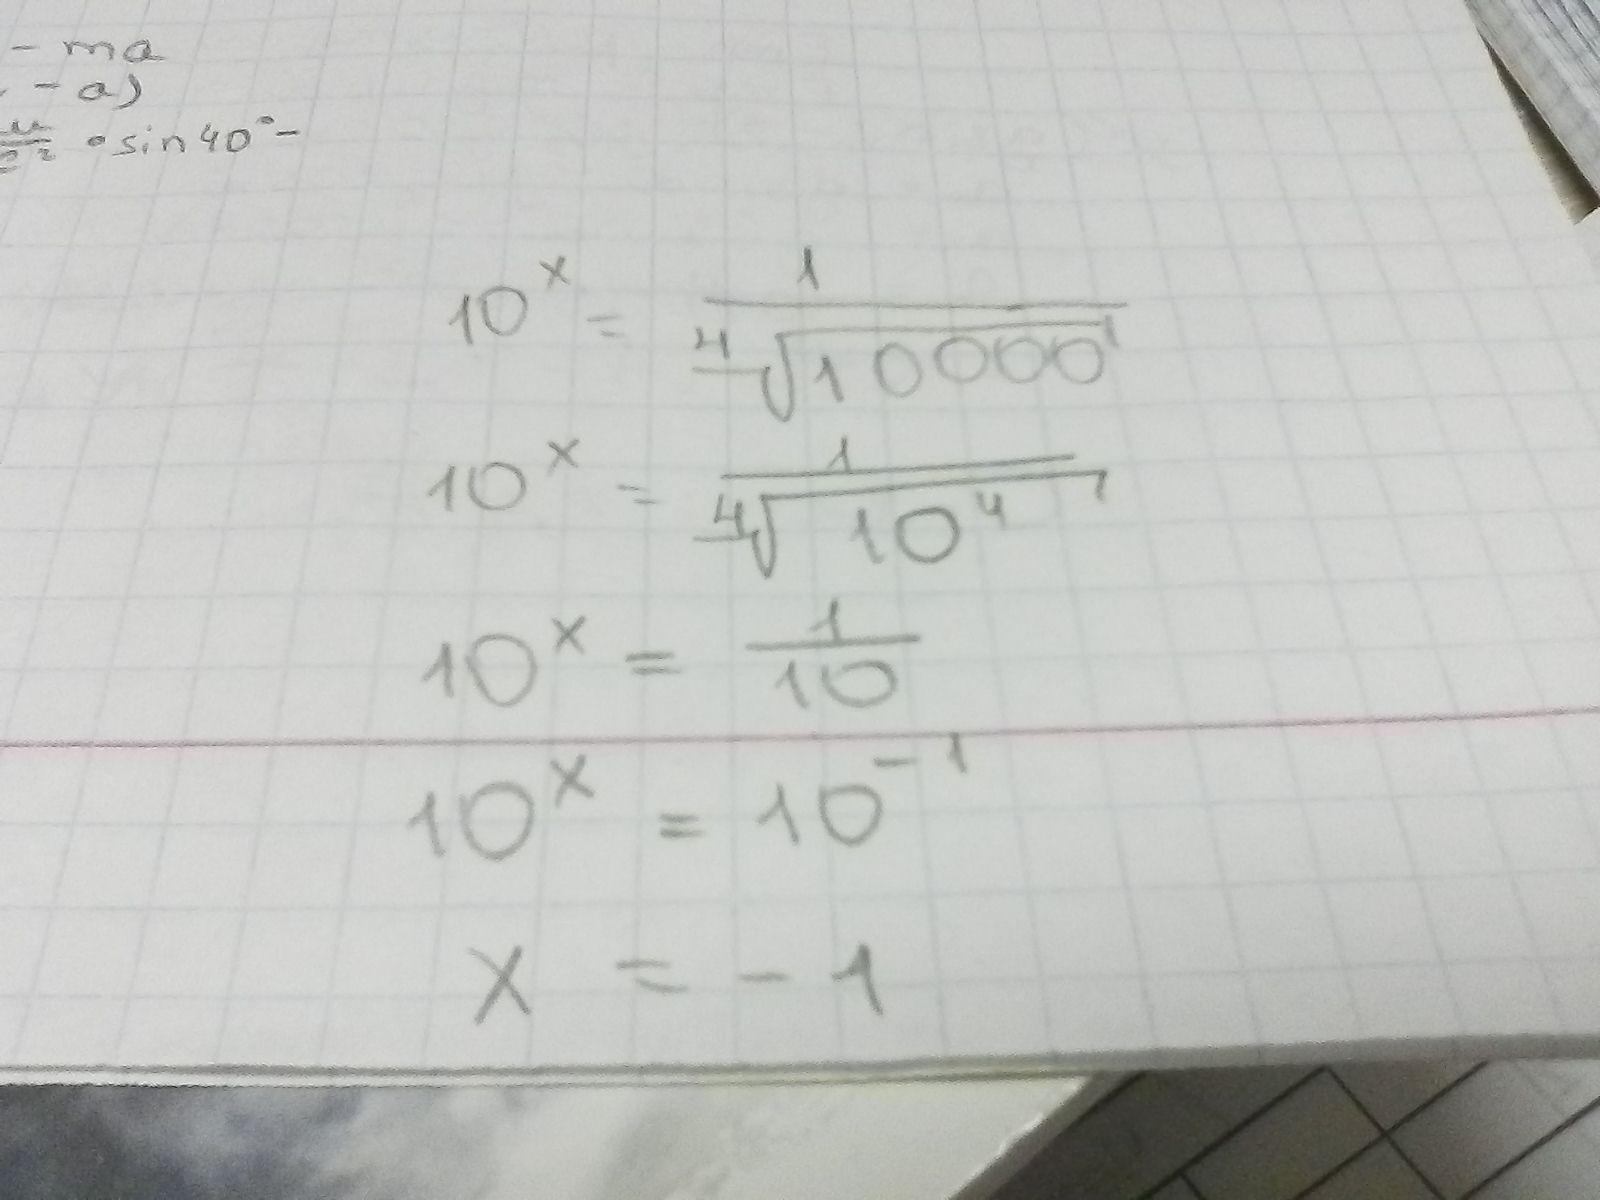 - ma
- a)
• sin 40° -
10^x = 1/⁴√10000
10^x = 1/⁴√10^4
10^x = 1/10
10^x = 10^-1
x = -1